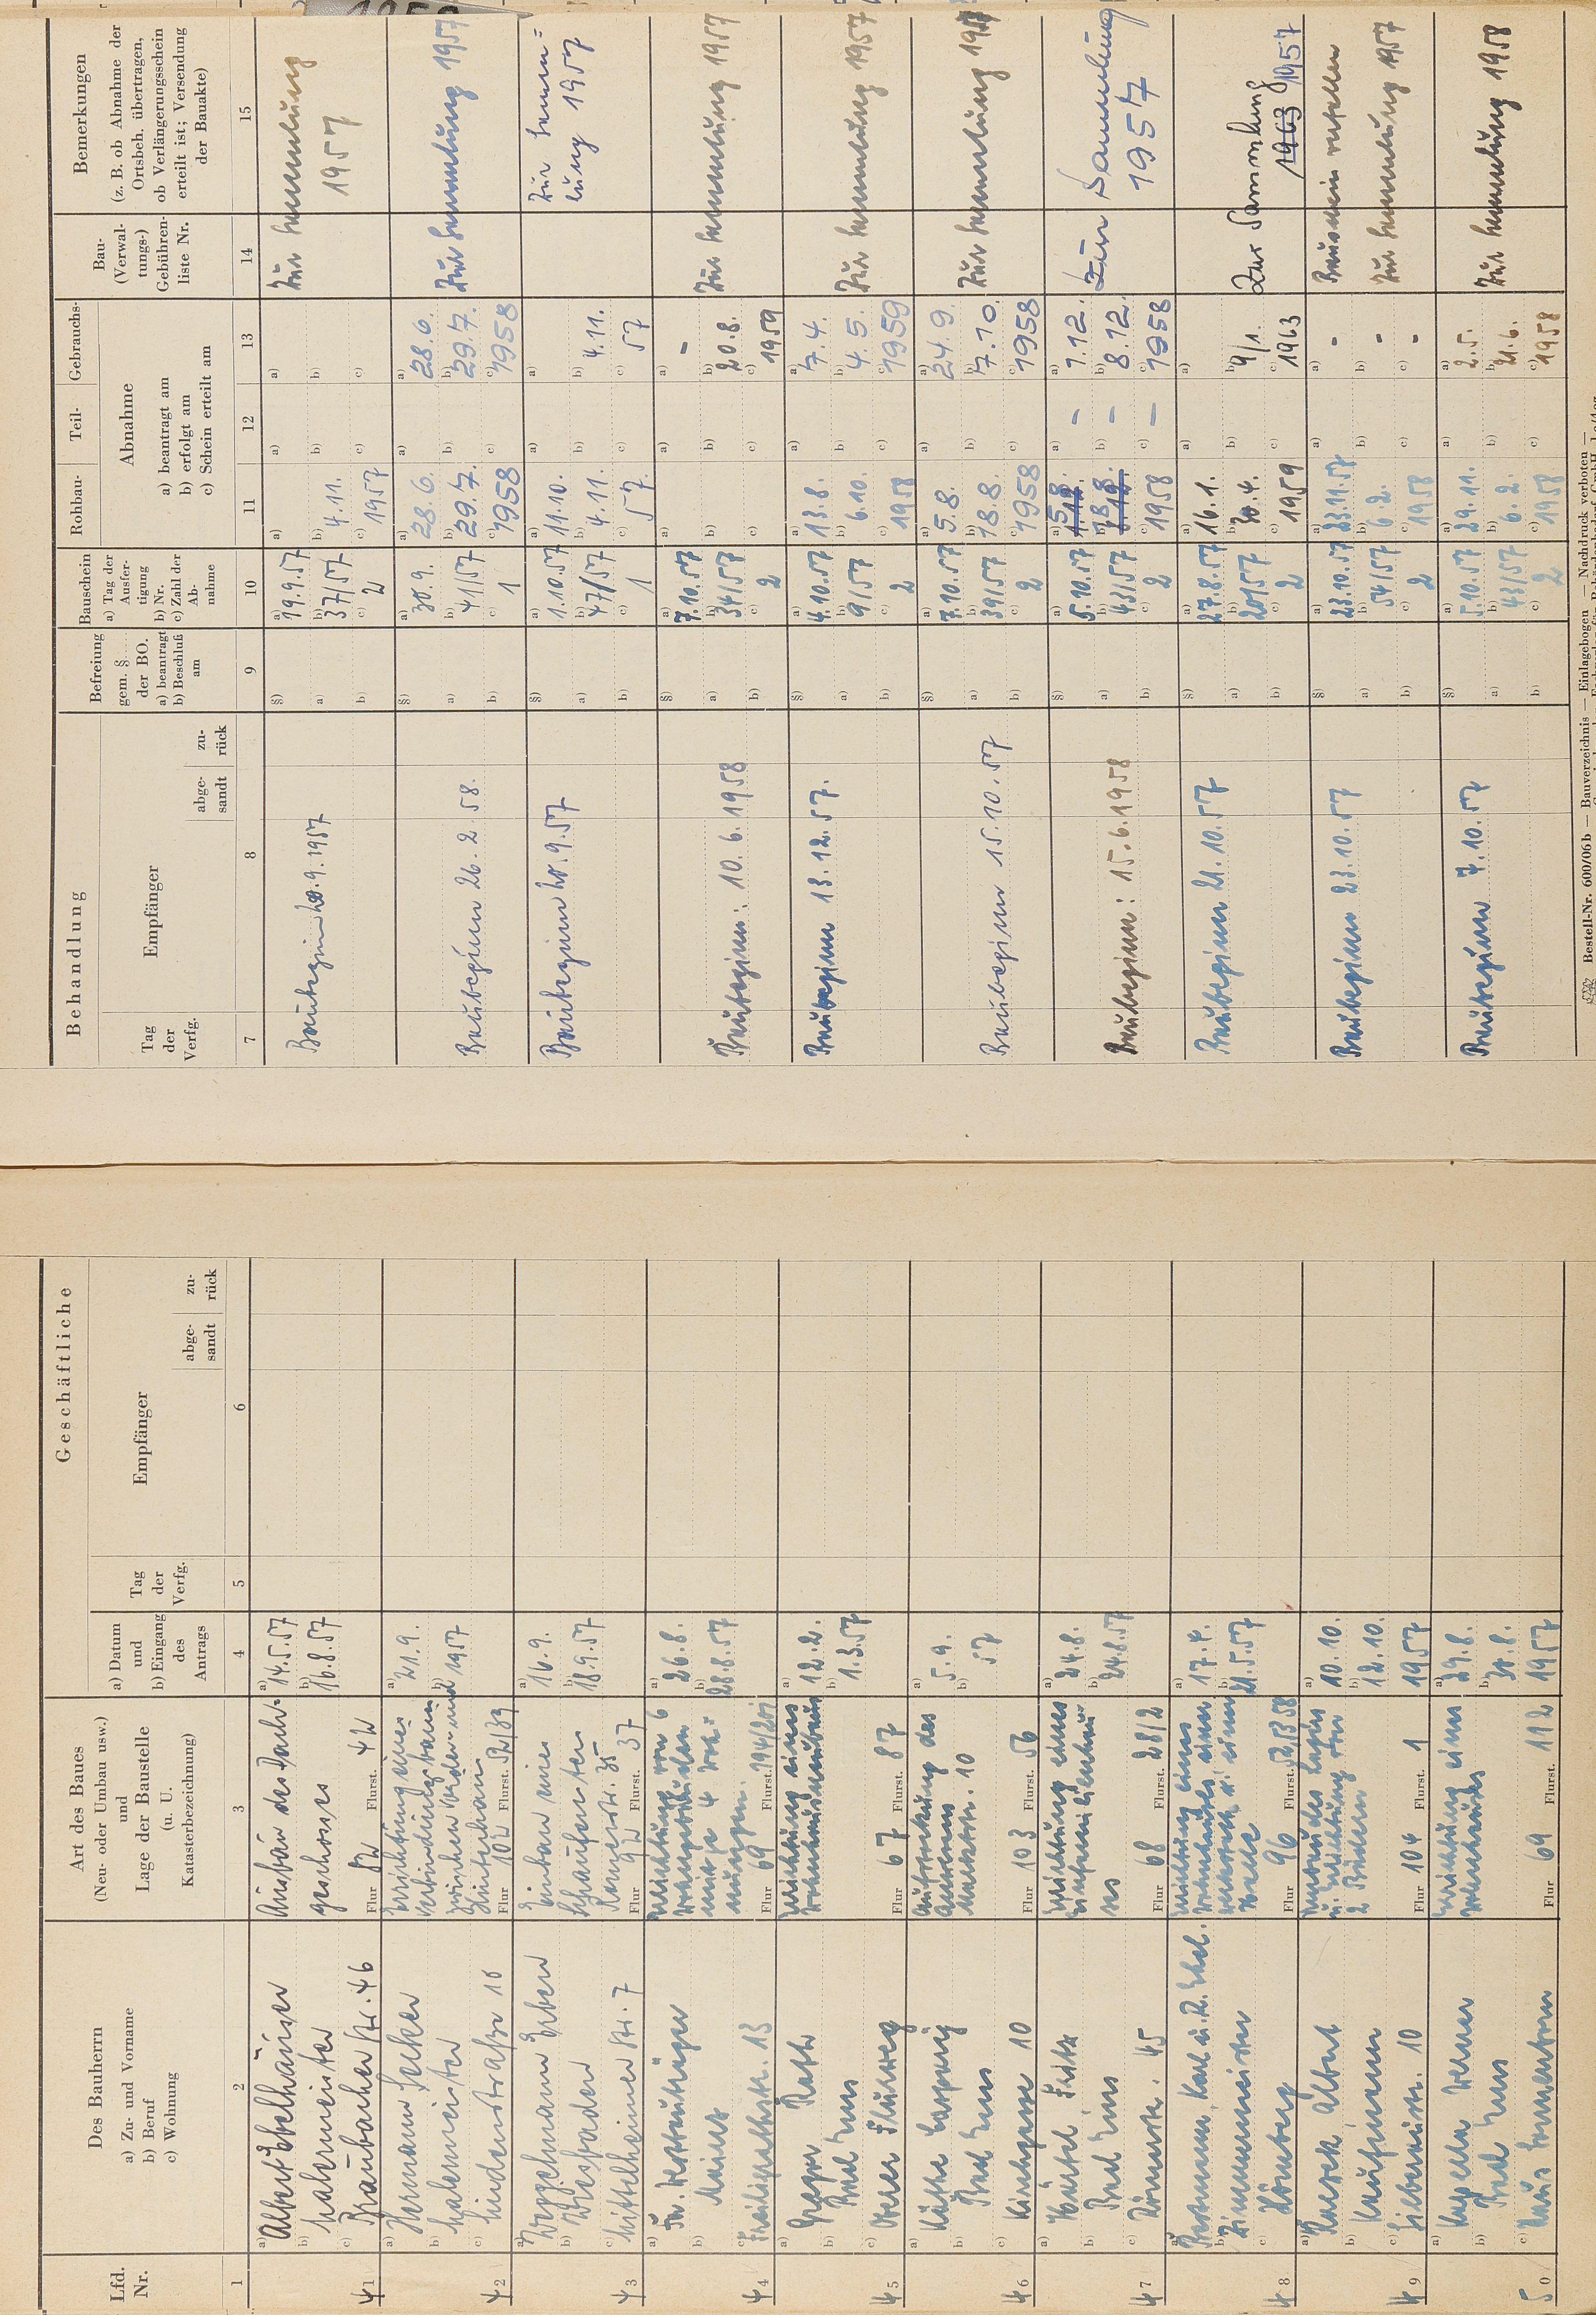 Geschäftliche
Lfd. Nr.
Des Bauherrn
a) Zu- und Vorname
b) Beruf
c) Wohnung
Art des Baues
(Neu- oder Umbau usw.)
und
Lage der Baustelle
(u. U.
Katasterbezeichnung)
a) Datum
und
b) Eingang
des
Antrags
Tag
der
Verfg.
Empfänger
abge-
sandt
zu-
rück
1 2 3 4 5 6
41
a) Albert Ebelhäuser
b) Malermeister
c) Braubacher Str. 46
Ausbau des Dach-
geschosses
Flur 82 Flurst. 42
a) 14.5.57
b) 16.8.57
42
a) Hermann
b) Malermeister
c) Lindenstraße 10
Errichtung eines
Verbindungsbaus
zwischen Vorder- und
Hinterhaus
Flur 102 Flurst. 52/39
a) 21.9.
b) 1957
43
a) Weggelmann Erben
b) Wiesbaden
c) Mittelheimer Str. 7
Einbau eines
Schaufensters
Römerstr. 35
Flur 92 Flurst. 37
a) 16.9.
b) 18.9.57
44
a)
b) Mainz
c) Freiligrathstr. 13
Errichtung von 6
Wohngebäuden
mit je 4 Woh-
nungen.
Flur 69 Flurst. 194/201
a) 26.8.
b) 28.8.57
45
a)
b) Bad Ems
c) Oberer
Errichtung eines
Flur 67 Flurst. 87
a) 12.2.
b) 1.3.57
46
a) Käthe
b) Bad Ems
c) Kirchgasse 10
Aufstockung des
Anwesens
Marktstr. 10
Flur 103 Flurst. 56
a) 5.9.
b) 57
47
a)
b) Bad Ems
c) Römerstr. 45
Errichtung eines
Einfamilienhau-
ses
Flur 68 Flurst. 28/2
a) 24.8.
b) 24.8.57
48
a) Karl
b) Zimmermeister
c) Hömberg
Errichtung eines
Wohnhauses, einer
Flur 96
a) 17.4.
b) 21.5.57
49
a) Albert
b) Kaufmann
c) Silberaustr. 10
Umbau des Lagers
u. Errichtung von
Flur 104 Flurst. 1
a) 10.10.
b) 12.10.
1957
50
a) Werner
b) Bad Ems
c) Haus Sonnenborn
Errichtung eines
Wohnhauses
Flur 69 Flurst. 112
a) 29.8.
b) 30.8.
1957
Behandlung
Tag
der
Verfg.
Empfänger
abge-
sandt
zu-
rück
Befreiung
gem. §....
der BO.
a) beantragt
b) Beschluß
am
Bauschein
a) Tag der
Ausfer-
tigung
b) Nr.
c) Zahl der
Ab-
nahme
Rohbau- Teil- Gebrauchs-
Abnahme
a) beantragt am
b) erfolgt am
c) Schein erteilt am
Bau-
(Verwal-
tungs-)
Gebühren-
liste Nr.
Bemerkungen
(z. B. ob Abnahme der
Ortsbeh. übertragen,
ob Verlängerungsschein
erteilt ist; Versendung
der Bauakte)
7 8 9 10 11 12 13 14 15
Baubeginn 20.9.1957
§) a) b)
a) 19.9.57
b) 37/57
c) 2
a)
b) 4.11.
c) 1957
a) b) c)
a) b) c)
Zur Sammlung
1957
Baubeginn 26.2.58.
§) a) b)
a) 30.9.
b) 41/57
c) 1
a) 28.6.
b) 29.7.
c) 1958
a) b) c)
a) 28.6.
b) 29.7.
c) 1958
Zur Sammlung 1957
Baubeginn 20.9.57
§) a) b)
a) 1.10.57
b) 47/57
c) 1
a) 11.10.
b) 4.11.
c) 57.
a) b) c)
a)
b) 4.11.
c) 57
Zur Samm=
lung 1957
Baubeginn: 10.6.1958
§) a) b)
a) 7.10.57
b) 34/57
c) 2
a) b) c)
a) b) c)
a) -
b) 20.8.
c) 1959
Zur Sammlung 1957
Baubeginn 13.12.57.
§) a) b)
a) 4.10.57
b) 9/57
c) 2
a) 13.8.
b) 6.10.
c) 1958
a) b) c)
a) 7.4.
b) 4.5.
c) 1959
Zur Sammlung 1957
Baubeginn 15.10.57
§) a) b)
a) 7.10.57
b) 39/57
c) 2
a) 5.8.
b) 18.8.
c) 1958
a) b) c)
a) 24.9.
b) 7.10.
c) 1958
Zur Sammlung 1957
Baubeginn: 15.6.1958
§) a) b)
a) 5.10.57
b) 43/57
c) 2
a) 5.8.
b) 8.8.
c) 1958
a) -
b) -
c) -
a) 1.12.
b) 8.12.
c) 1958
Zur Sammlung
1957
Baubeginn 21.10.57
§) a) b)
a) 27.8.57
b) 20/57
c) 2
a) 16.1.
b) 30.4.
c) 1959
a) b) c)
a)
b) 9/1.
c) 1963
Zur Sammlung
1963 1957
Baubeginn 23.10.57
§) a) b)
a) 23.10.57
b) 54/57
c) 2
a) 23.11.57
b) 6.2.
c) 1958
a) b) c)
a) -
b) -
c) -
Bauschein verfallen
Zur Sammlung 1957
Baubeginn 7.10.57
§) a) b)
a) 5.10.57
b) 48/57
c) 2
a) 29.11.
b) 6.2.
c) 1958
a) b) c)
a) 2.5.
b) 21.6.
c) 1958
Zur Sammlung 1958
Bestell-Nr. 600/06 b — Bauverzeichnis — Einlagebogen — Nachdruck verboten —